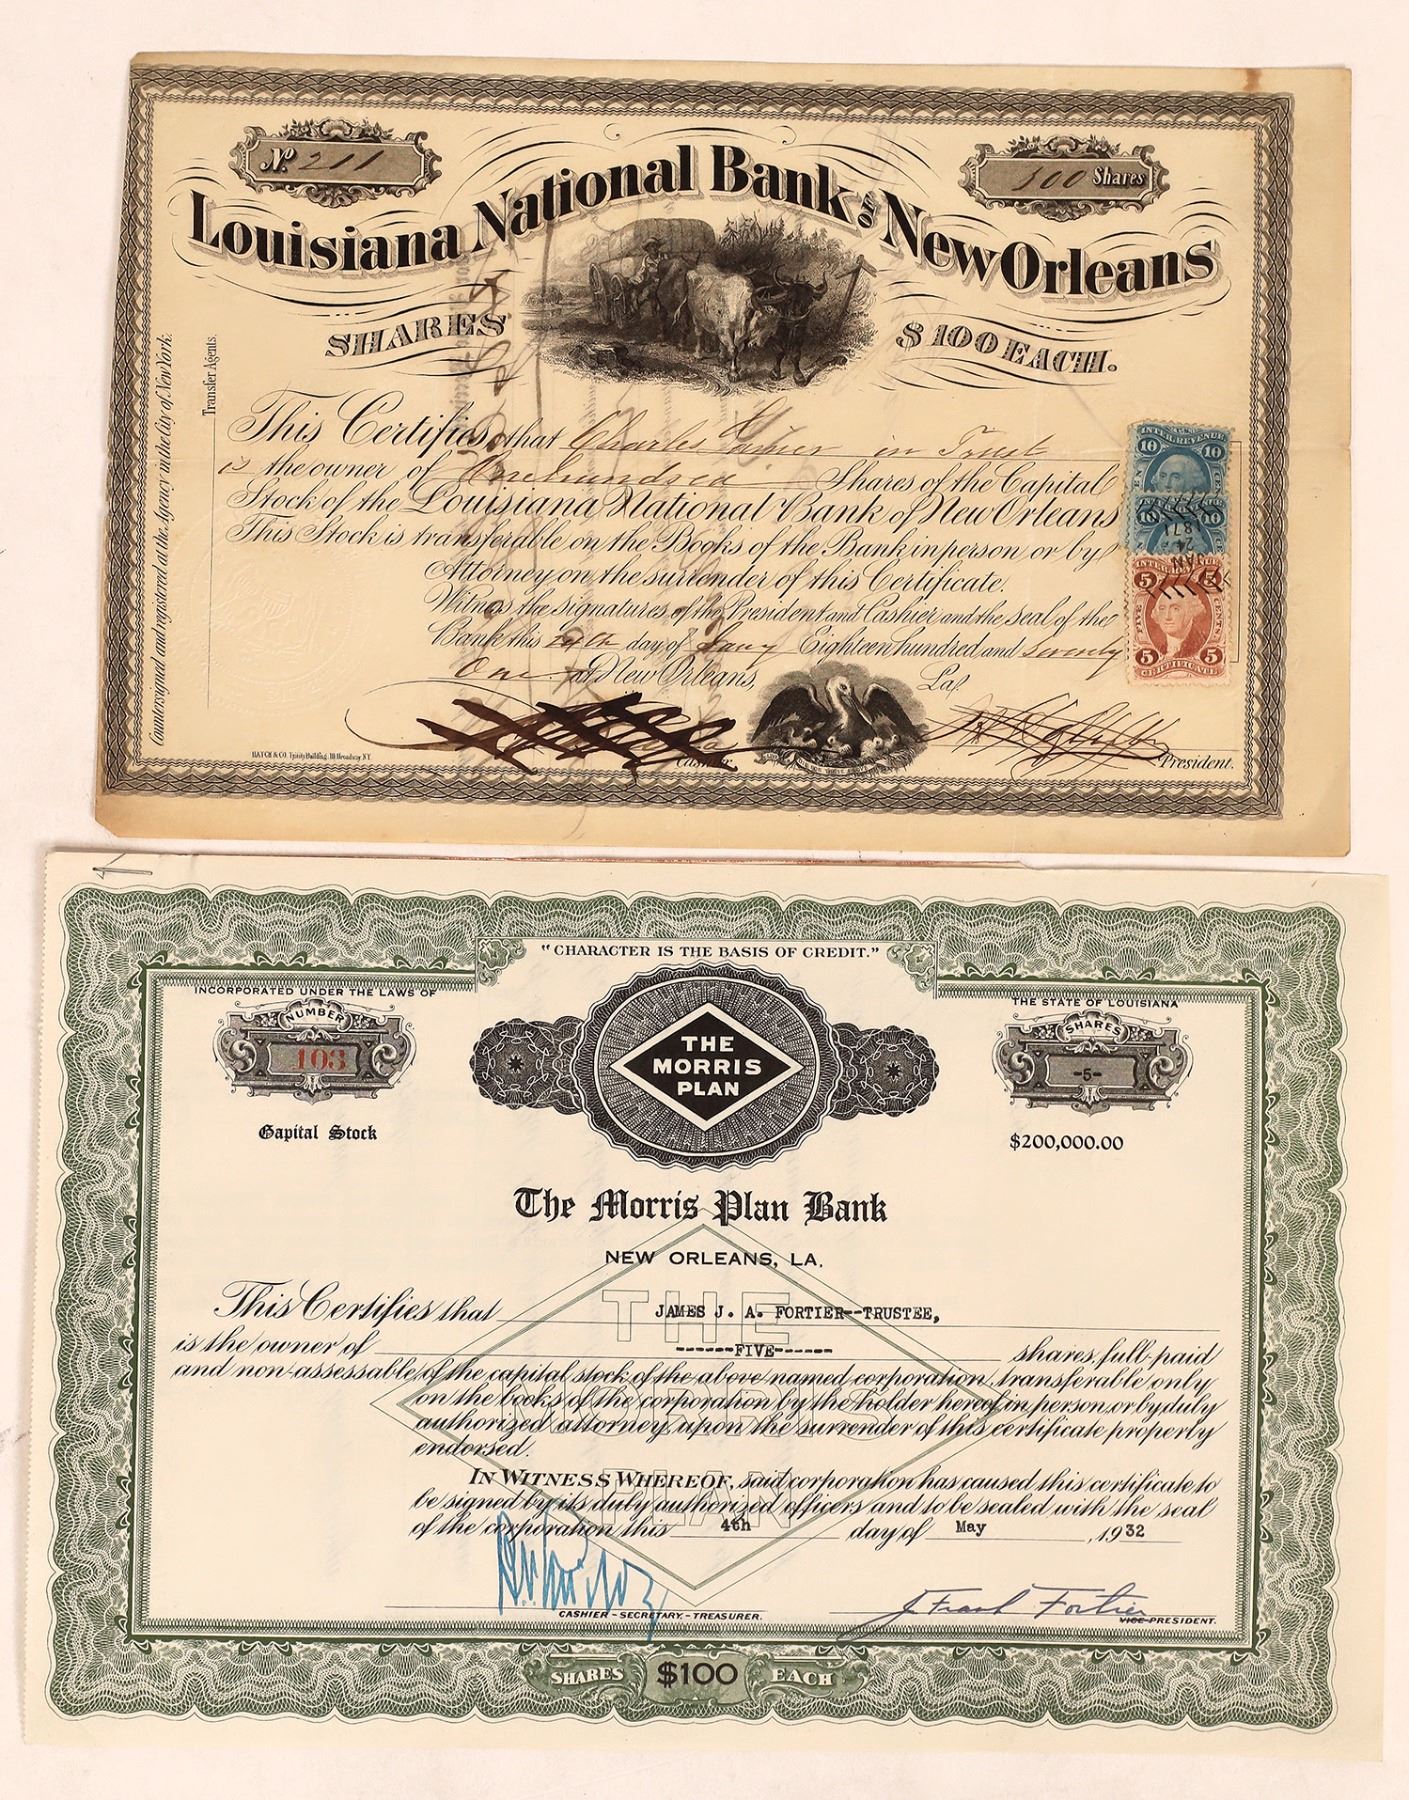 No. 211
100 Shares
Louisiana National Bank OF New Orleans
SHARES $100 EACH.
Countersigned and registered at the Agency in the City of New York.
Transfer Agents.
This Certifies that Charles in Trust
is the owner of One hundred Shares of the Capital
Stock of the Louisiana National Bank of New Orleans
This Stock is transferable on the Books of the Bank in person or by
Attorney on the surrender of this Certificate.
Witness the signatures of the President and Cashier and the seal of the
Bank this 24th day of Jany Eighteen hundred and Seventy
One. at New Orleans, La.
Cashier President.
HATCH & CO. Trinity Building, 111 Broadway N.Y.
U.S.
INTER. REVENUE
10 10
10 10
JAN
24
1871
INTER. REVENUE
5 5
FIVE CENTS
5 5
CERTIFICATE
"CHARACTER IS THE BASIS OF CREDIT."
INCORPORATED UNDER THE LAWS OF
THE STATE OF LOUISIANA
NUMBER
108
SHARES
-5-
THE
MORRIS
PLAN
Capital Stock
$200,000.00
The Morris Plan Bank
NEW ORLEANS, LA.
This Certifies that JAMES J. A. FORTIER--TRUSTEE,
is the owner of ------FIVE------ shares, full-paid
and non-assessable, of the capital stock of the above named corporation, transferable only
on the books of the corporation by the holder hereof in person, or by duly
authorized attorney, upon the surrender of this certificate properly
endorsed.
IN WITNESS WHEREOF, said corporation has caused this certificate to
be signed by its duly authorized officers and to be sealed with the seal
of the corporation this 4th day of May, 1932
THE
MORRIS
PLAN
J Frank Fortier
CASHIER - SECRETARY - TREASURER.
VICE-PRESIDENT.
SHARES $100 EACH